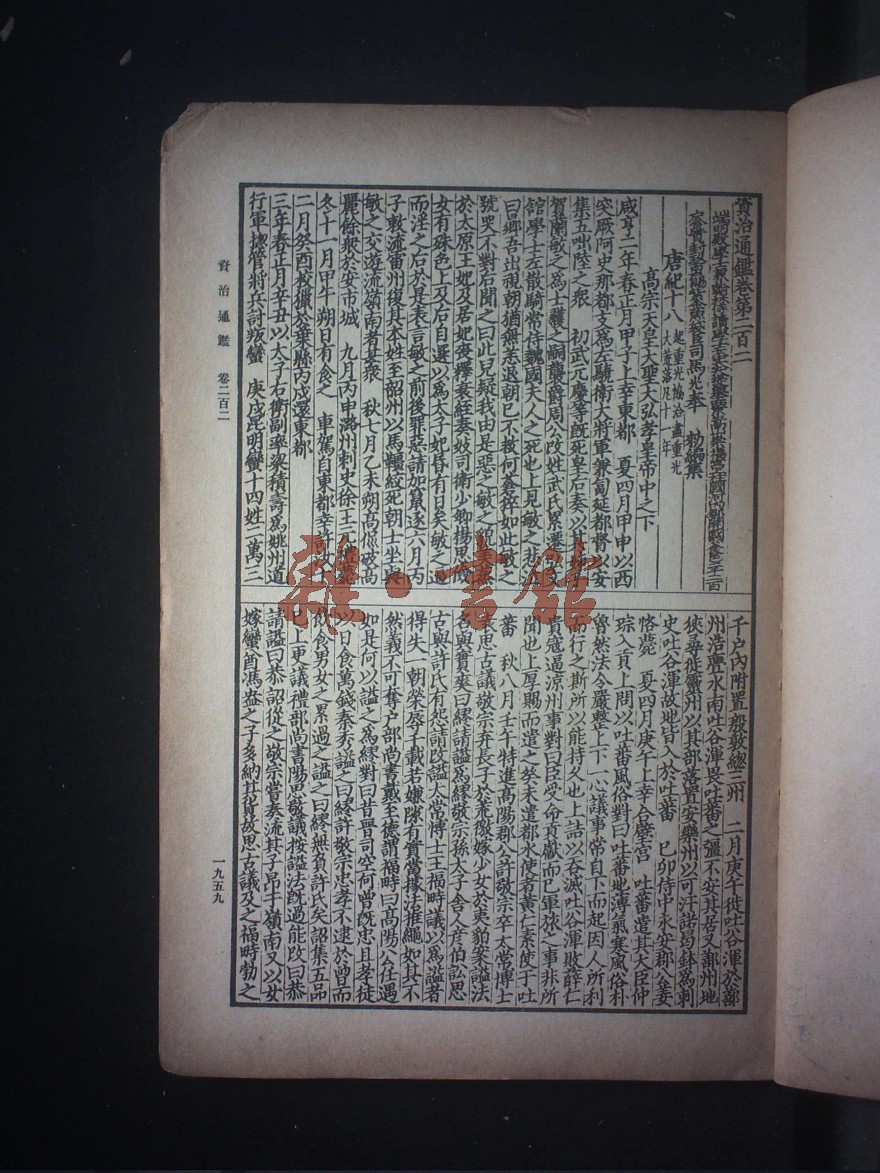 資治通鑑卷第二百二
端明殿學士兼翰林侍讀學士太中大夫提舉西京嵩山崇福宮上柱國河內郡開國公食邑二千二百
司馬光奉　勑編集
唐紀十八　起重光協洽盡重光大荒落凡十一年
高宗天皇大聖大弘孝皇帝中之下
咸亨二年春正月甲子上幸東都　夏四月甲申以西
突厥阿史那都支爲左驍衞大將軍兼匐延都督以安
集五咄陸之衆　初武元慶等旣死皇后奏以其姊子
賀蘭敏之爲士彠之嗣襲爵周公改姓武氏累遷弘文
館學士左散騎常侍魏國夫人之死也上見敏之悲泣
曰曏吾出視朝猶無恙退朝已不救何倉猝如此敏之
號哭不對后聞之曰此兒疑我由是惡之敏之貌美蒸
於太原王妃及居妃喪釋衰絰奏妓司衞少卿楊思儉
女有殊色上及后自選以爲太子妃昏有日矣敏之逼
而淫之后於是表言敏之前後罪惡請加竄逐六月丙
子敕流雷州復其本姓至韶州以馬韁絞死朝士坐與
敏之交遊流嶺南者甚衆　秋七月乙未朔高侃破高
麗餘衆於安市城　九月丙申潞州刺史徐王元禮薨
冬十一月甲午朔日有食之　車駕自東都幸許汝十
二月癸酉校獵於葉縣丙戌還東都
三年春正月辛丑以太子右衞副率梁積壽爲姚州道
行軍總管將兵討叛蠻　庚戌昆明蠻十四姓二萬三
千戶內附置殷敦總三州　二月庚午徙吐谷渾於鄯
州浩亹水南吐谷渾畏吐蕃之彊不安其居又鄯州地
狹尋徙靈州以其部落置安樂州以可汗諾曷鉢爲刺
史吐谷渾故地皆入於吐蕃　己卯侍中永安郡公姜
恪薨　夏四月庚午上幸合璧宮　吐蕃遣其大臣仲
琮入貢上問以吐蕃風俗對曰吐蕃地薄氣寒風俗朴
魯然法令嚴整上下一心議事常自下而起因人所利
而行之斯所以能持久也上詰以吞滅吐谷渾敗薛仁
貴寇逼涼州事對曰臣受命貢獻而已軍旅之事非所
聞也上厚賜而遣之癸未遣都水使者黃仁素使于吐
蕃　秋八月壬午特進高陽郡公許敬宗卒太常博士
袁思古議敬宗弃長子於荒徼嫁少女於夷貊案謚法
名與實爽曰繆請謚爲繆敬宗孫太子舍人彥伯訟思
古與許氏有怨請改謚太常博士王福畤議以爲謚者
得失一朝榮辱千載若嫌隙有實當據法推繩如其不
然義不可奪戶部尚書戴至德謂福畤曰高陽公任遇
如是何以謚之爲繆對曰昔晉司空何曾旣忠且孝徒
以日食萬錢秦秀謚之曰繆許敬宗忠孝不逮於曾而
飲食男女之累過之謚之曰繆無負許氏矣詔集五品
已上更議禮部尚書陽思敬議按謚法旣過能改曰恭
請謚曰恭詔從之敬宗嘗奏流其子昂于嶺南又以女
嫁蠻酋馮盎之子多納其貨故思古議及之福畤勃之
資治通鑑　卷二百二
一九五九
雜·書館